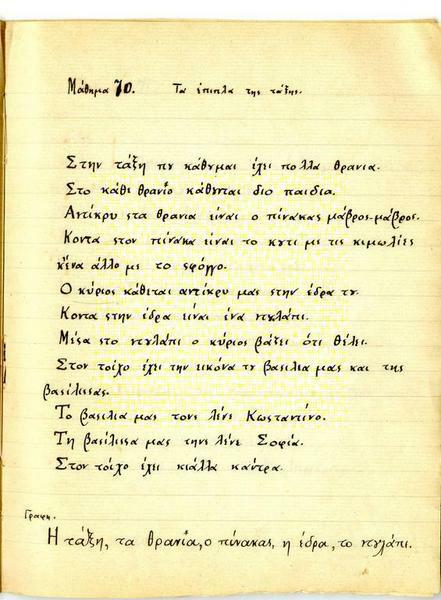 Μάθημα 70. Τα έπιπλα της τάξης.
Στην τάξη πυ κάθυμαι έχει πολλα θρανια.
Στο κάθι θρανίο κάθυνται διο παιδια.
Αντίκρυ στα θρανια είναι ο πίνακας μάβρος-μάβρος.
Κοντα στον πίνακα είναι το κυτι με τις κιμωλίες
κ̓ ένα άλλο με το σφόγγο.
Ο κύριος κάθιται αντίκρυ μας στην έδρα τυ.
Κοντα στην έδρα είναι ένα ντυλάπι.
Μέσα στο ντυλάπι ο κύριος βάζει ότι θέλει.
Στον τοίχο έχει την εικόνα τυ βασιλια μας και της
βασίλισσας.
Το βασιλια μας τονε λένε Κωσταντίνο.
Τη βασίλισσα μας τηνε λένε Σοφία.
Στον τοίχο έχει κιάλλα κάντρα.
Γραφη.
Η τάξη, τα θρανία, ο πίνακας, η έδρα, το ντυλάπι.